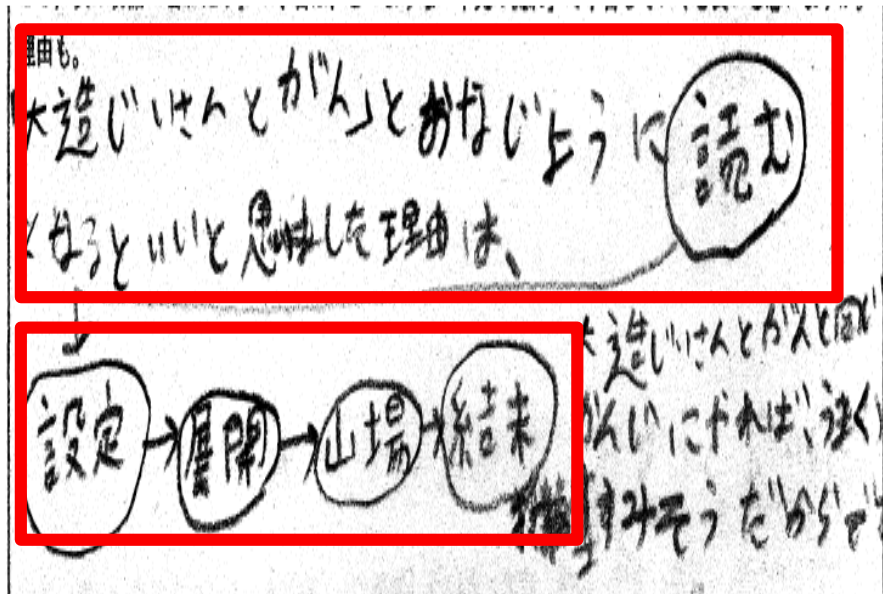 理由も。
大造じいさんとがん」とおなじように読む
となるといいと思いました理由は、
設定→展開→山場→結末
大造じいさんとがんと同じ
かんじにやれば、うまく
すみそうだからで